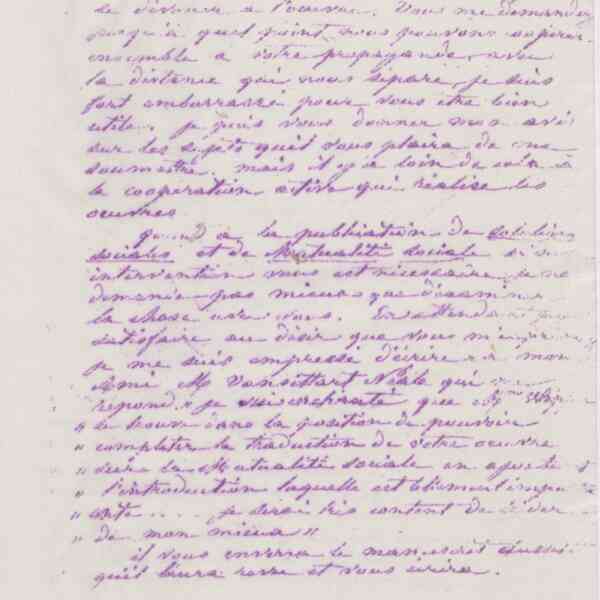 se dévouer à l'oeuvre. Vous me demandez
jusqu'à quel point nous pouvons coopérer
ensemble à votre propagande, avec
la distance qui nous sépare, je suis
fort embarrassé pour vous être bien
utile. je puis vous donner mon avis
sur les sujets qu'il vous plaira de me
soumettre, mais il y a loin de cela à
la coopération active qui réalise les
oeuvres
quand à la publication de Solutions
sociales et de Mutualité sociale si mon
intervention vous est nécessaire je ne
demande pas mieux que d'examiner
la chose avec vous. En attendant pour
satisfaire au désir que vous m'exprimez
je me suis empressé d'écrire à mon
Ami M Vansittart Neale qui me
répond " je suis enchanté que
" se trouve dans la position de pouvoir
" completer la traduction de votre oeuvre
" sur la Mutualité sociale en y
" l'introduction laquelle est
" je serai très content de l'aider
" de mon mieux "
il vous enverra le manuscrit aussi-
qu'il l'aura revu et vous écrira.